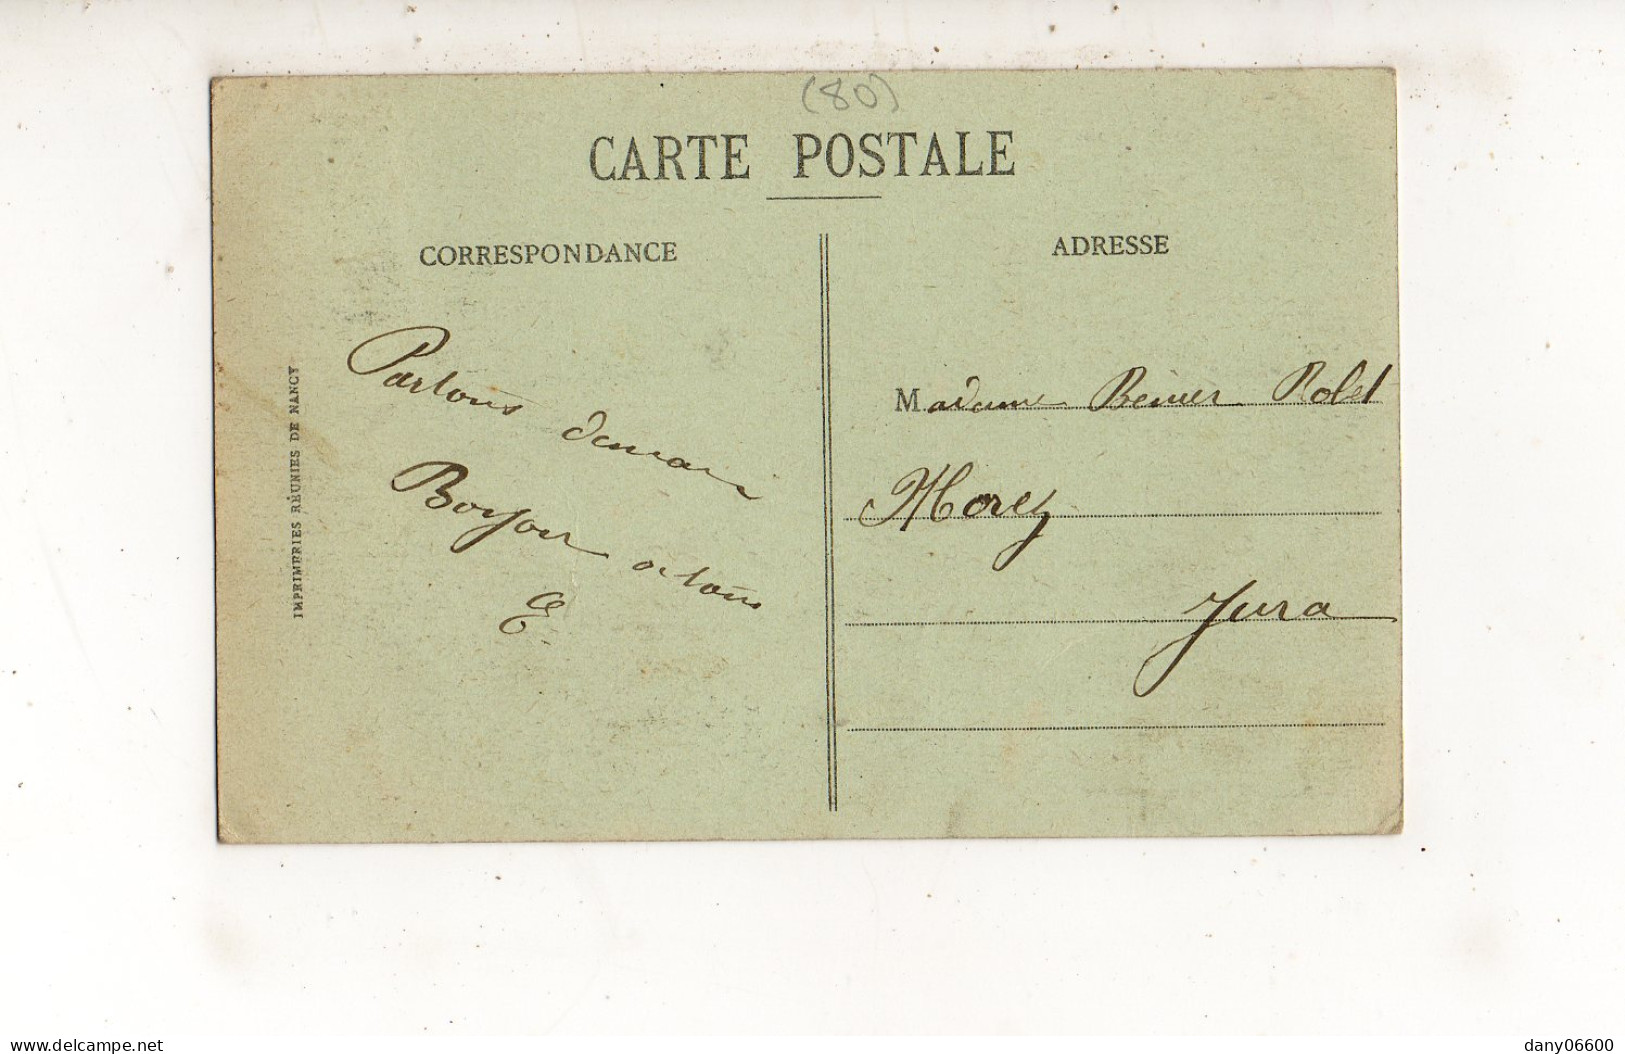 (80)
CARTE POSTALE
CORRESPONDANCE
Partons demain
Bonjour a tous
E.
IMPRIMERIES RÉUNIES DE NANCY
ADRESSE
Madame Rolet
Morez
Jura
www.delcampe.net
dany06600